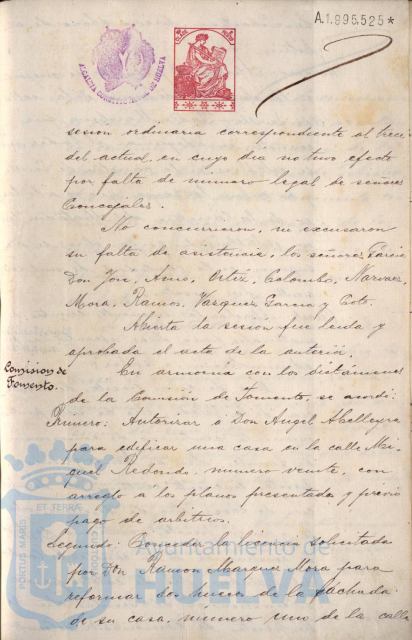 A.1.995.525*
ALCALDIA CONSTITUCIONAL DE HUELVA
sesion ordinaria correspondiente al trece
del actual, en cuyo dia no tuvo efecto
por falta de número legal de señores
Concejales.
No concurrieron, ni excusaron
su falta de asistencia, los señores García
Don José, Amo, Ortiz, Colombo, Narvaez,
Mora, Ramos, Vazquez, Garcia y Coto.
Abierta la sesión fue leida y
aprobada el acta de la anterior.
Comision de
Fomento.
En armonia con los dictámenes
de la Comisión de Fomento, se acordó:
Primero: Autorizar a Don Angel Abelleyra
para edificar una casa en la calle Mi-
guel Redondo, número veinte, con
arreglo a los planos presentados y previo
pago de arbitrios.
Segundo: Conceder la licencia solicitada
por Don Ramon Marquez Mora para
reformar dos huecos de la fachada
de su casa, número uno de la calle
PORTUS MARIS ET TERRAE CUSTODIA
Ayuntamiento de
HUELVA